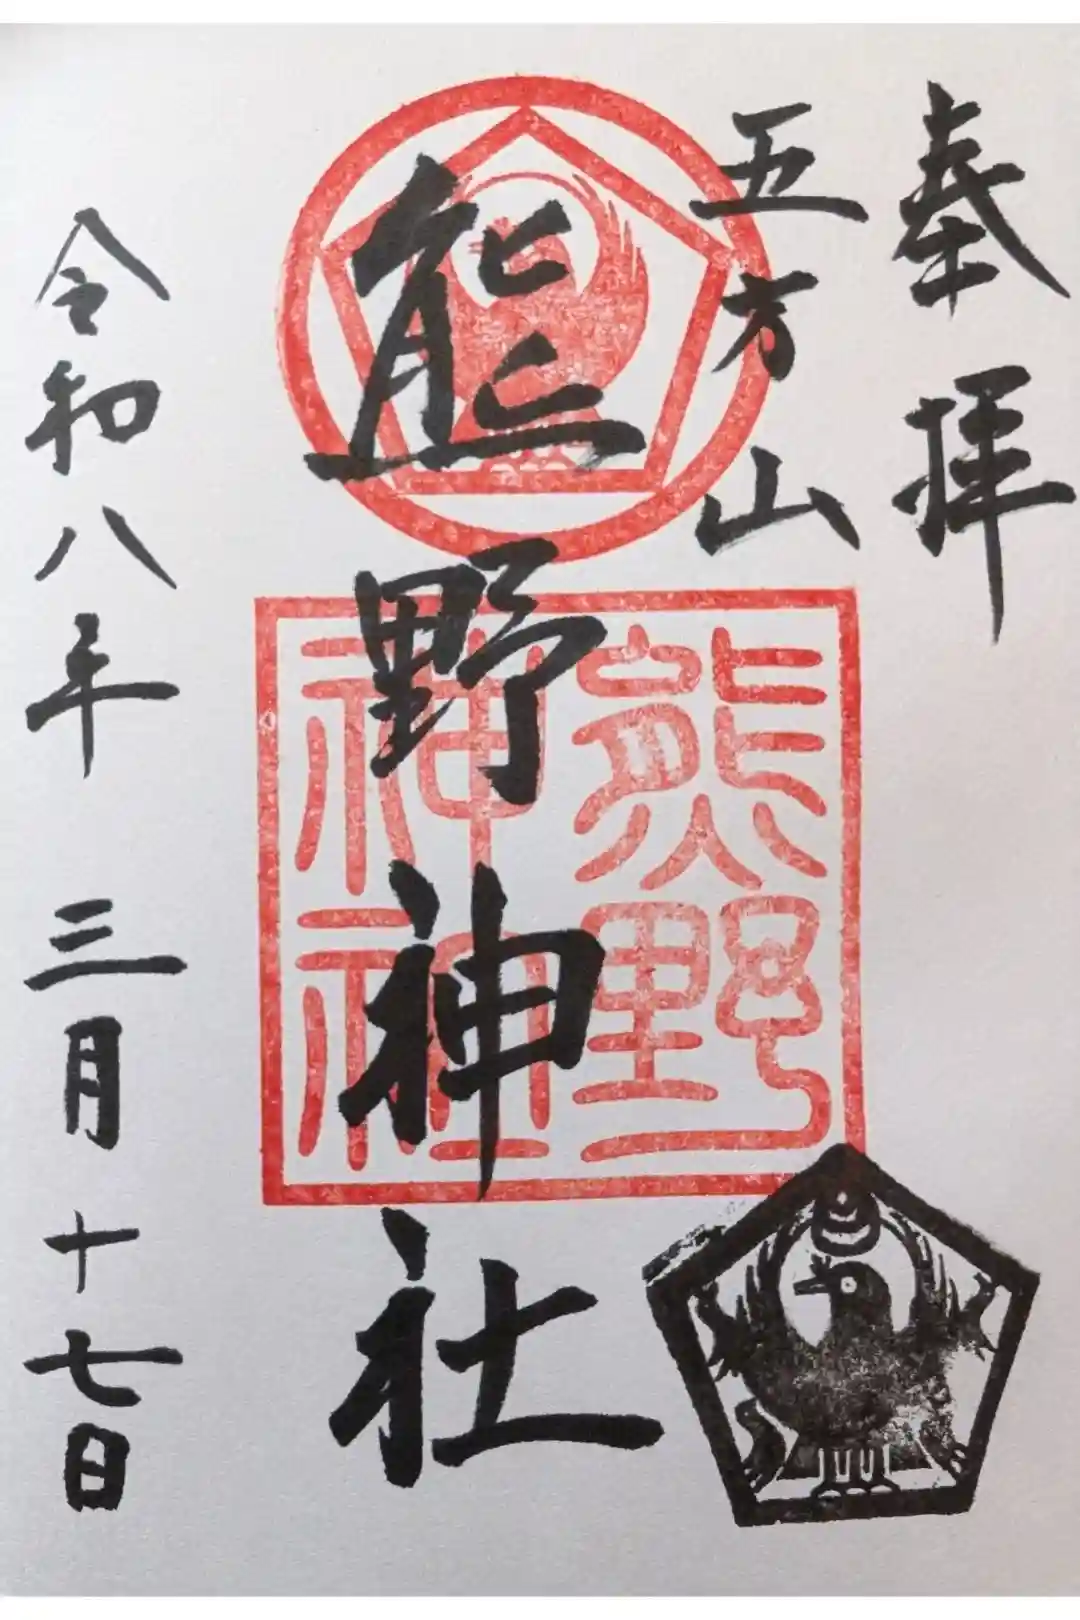 奉拝
五方山
熊野神社
熊野
神社
令和八年三月十七日